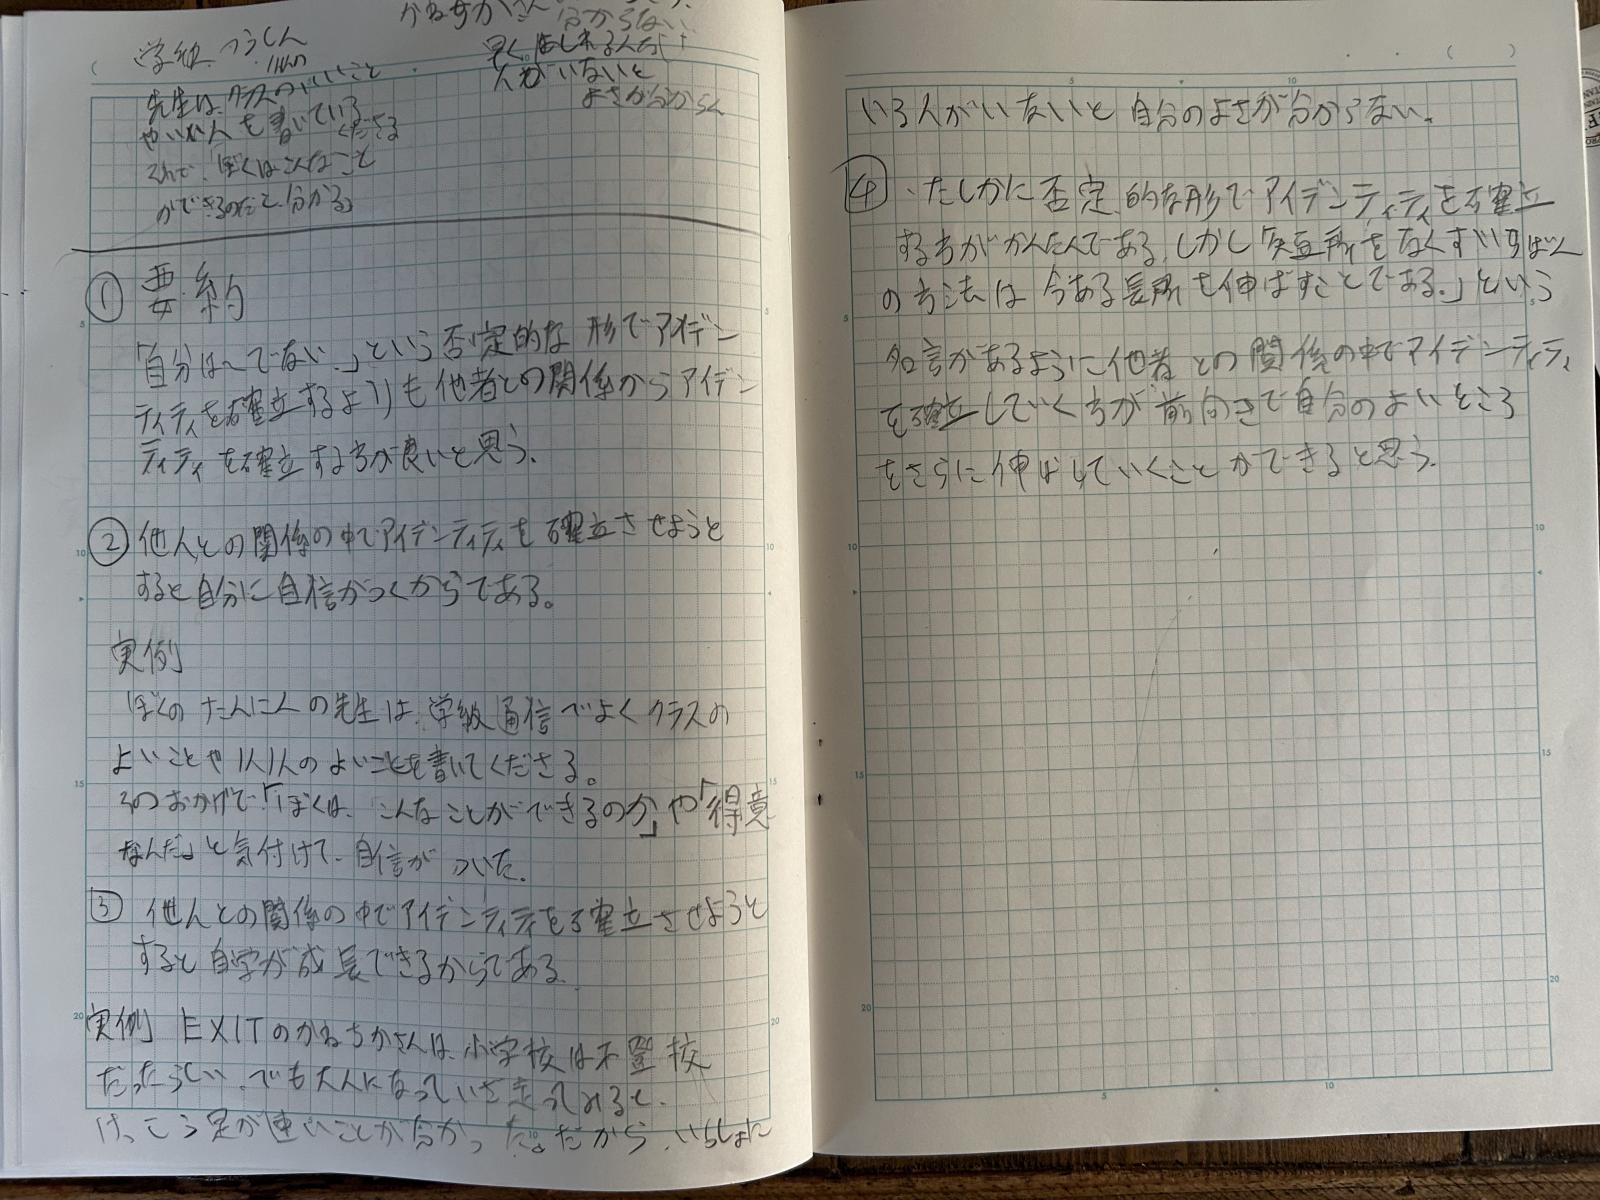 学級つうしん
先生は、クラスのいいこと
やいい人を書いている
くださる
それで、ぼくはこんなこと
ができるのだと分かる。
分からない
早くはしれる人が
人がいないと
よさが分からん
① 要約
「自分は〜でない。」という否定的な形でアイデン
ティティを確立するよりも他者との関係からアイデン
ティティを確立する方が良いと思う。
② 他人との関係の中でアイデンティティを確立させようと
すると自分に自信がつくからである。
実例
ぼくのたんにんの先生は、学級通信でよくクラスの
よいことや1人1人のよいことを書いてくださる。
そのおかげで「ぼくは、こんなことができるのか」や「得意
なんだ」と気付けて、自信がついた。
③ 他人との関係の中でアイデンティティを確立させようと
すると自学が成長できるからである。
実例 EXITのかねちかさんは、小学校は不登校
だったらしい。でも大人になっていざ走ってみると、
けっこう足が速いことが分かった。だから、いっしょに
いる人がいないと自分のよさが分からない。
④ ・たしかに否定的な形でアイデンティティを確立
する方がかんたんである。しかし「短所をなくすいちばん
の方法は今ある長所を伸ばすことである。」という
名言があるように他者との関係の中でアイデンティティ
を確立していく方が前向きで自分のよいところ
をさらに伸ばしていくことができると思う。